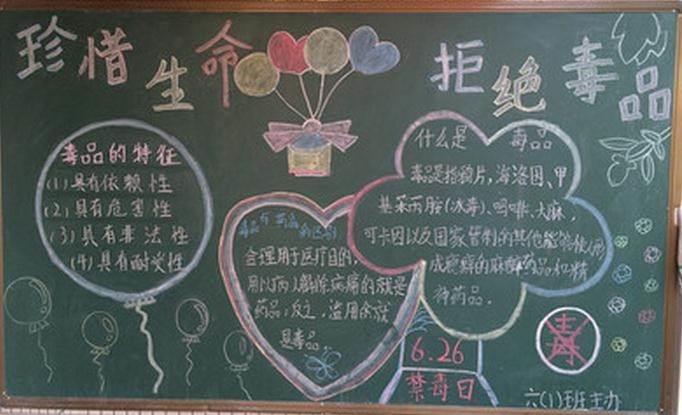 珍惜生命 拒绝毒品
毒品的特征
(1)具有依赖性
(2)具有危害性
(3)具有非法性
(4)具有耐受性
毒品与药品的区别
合理用于医疗目的,
用以病人解除病痛的就是
药品;反之,滥用余就
是毒品。
什么是 毒品
毒品是指鸦片,海洛因、甲
基苯丙胺(冰毒)、吗啡、大麻,
可卡因以及国家管制的其他能够使人形
成瘾癖的麻醉药品和精
神药品。
毒
6.26
禁毒日
六(1)班主办